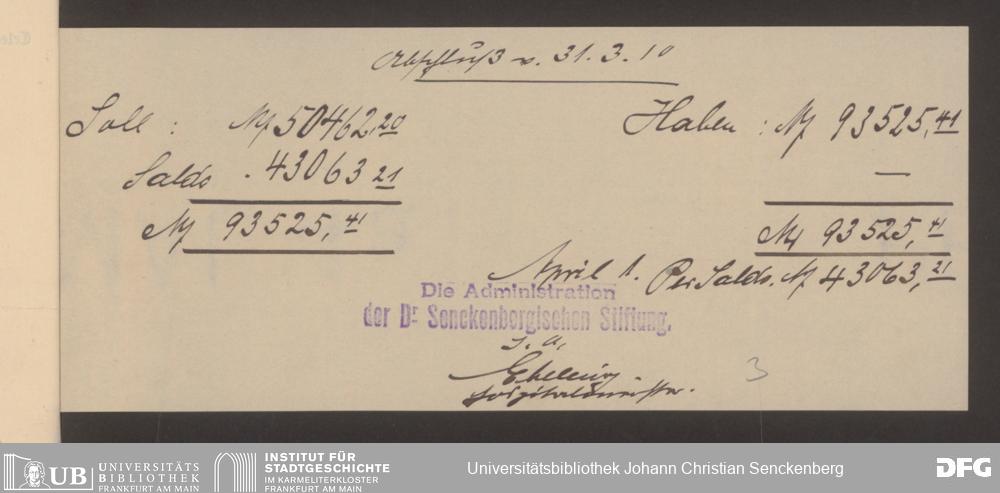 Abschluß v. 31.3.10
Soll : M 50462,20 Haben : M 93525,41
Saldo . 43063 21 —
M 93525,41 M 93525,41
April 1. Per Saldo. M 43063,21
Die Administration
der Dr Senckenbergischen Stiftung.
I. A.
Hospitalmeister.
3
UB UNIVERSITÄTS
BIBLIOTHEK
FRANKFURT AM MAIN
INSTITUT FÜR
STADTGESCHICHTE
IM KARMELITERKLOSTER
FRANKFURT AM MAIN
Universitätsbibliothek Johann Christian Senckenberg
DFG